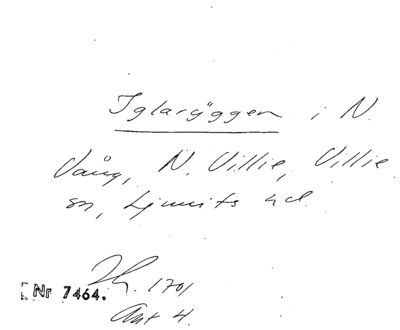 Iglaryggen i N.
Vång, N. Villie, Villie
sn, Ljunits hd.
1701
Nr 7464.
Akt 4.